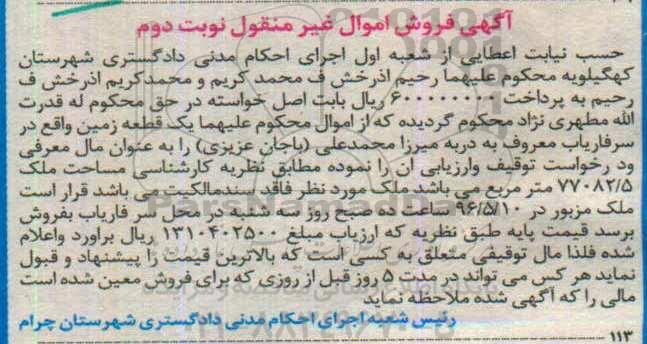 آگهی فروش اموال غیر منقول نوبت دوم
حسب نیابت اعطایی از شعبه اول اجرای احکام مدنی دادگستری شهرستان
کهگیلویه محکوم علیهما رحیم اذرخش ف محمد کریم و محمدکریم اذرخش ف
رحیم به پرداخت ۶۰۰۰۰۰۰۰۰ ریال بابت اصل خواسته در حق محکوم له قدرت
الله مطهری نژاد محکوم گردیده که از اموال محکوم علیهما یک قطعه زمین واقع در
سرفاریاب معروف به دربه میرزا محمدعلی (باجان عزیزی) را به عنوان مال معرفی
ود رخواست توقیف وارزیابی ان را نموده مطابق نظریه کارشناسی مساحت ملک
۷۷۰۸۲/۵ متر مربع می باشد ملک مورد نظر فاقد سندمالکیت می باشد قرار است
ملک مزبور در ۹۶/۵/۱۰ ساعت ده صبح روز سه شنبه در محل سر فاریاب بفروش
برسد قیمت پایه طبق نظریه که ارزیاب مبلغ ۱۳۱۰۴۰۲۵۰۰ ریال براورد واعلام
شده فلذا مال توقیفی متعلق به کسی است که بالاترین قیمت را پیشنهاد و قبول
نماید هر کس می تواند در مدت ۵ روز قبل از روزی که برای فروش معین شده است
مالی را که آگهی شده ملاحظه نماید
رئیس شعبه اجرای احکام مدنی دادگستری شهرستان چرام
۱۱۳